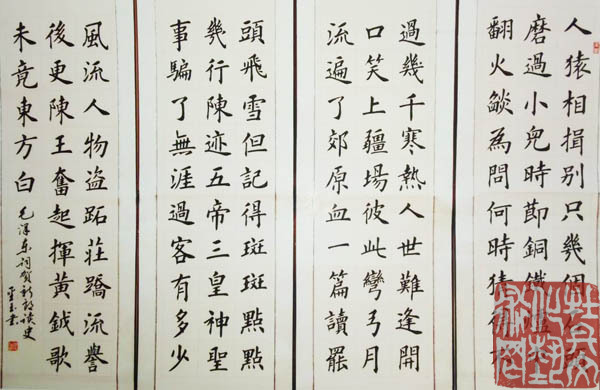 人猿相揖別只幾個
磨過小兒時節銅鐵
翻火燄為問何時猜
過幾千寒熱人世難逢開
口笑上疆場彼此彎弓月
流遍了郊原血一篇讀罷
頭飛雪但記得斑斑點點
幾行陳迹五帝三皇神聖
事騙了無涯過客有多少
風流人物盜跖莊蹻流譽
後更陳王奮起揮黃鉞歌
未竟東方白
毛澤東詞賀新郎讀史